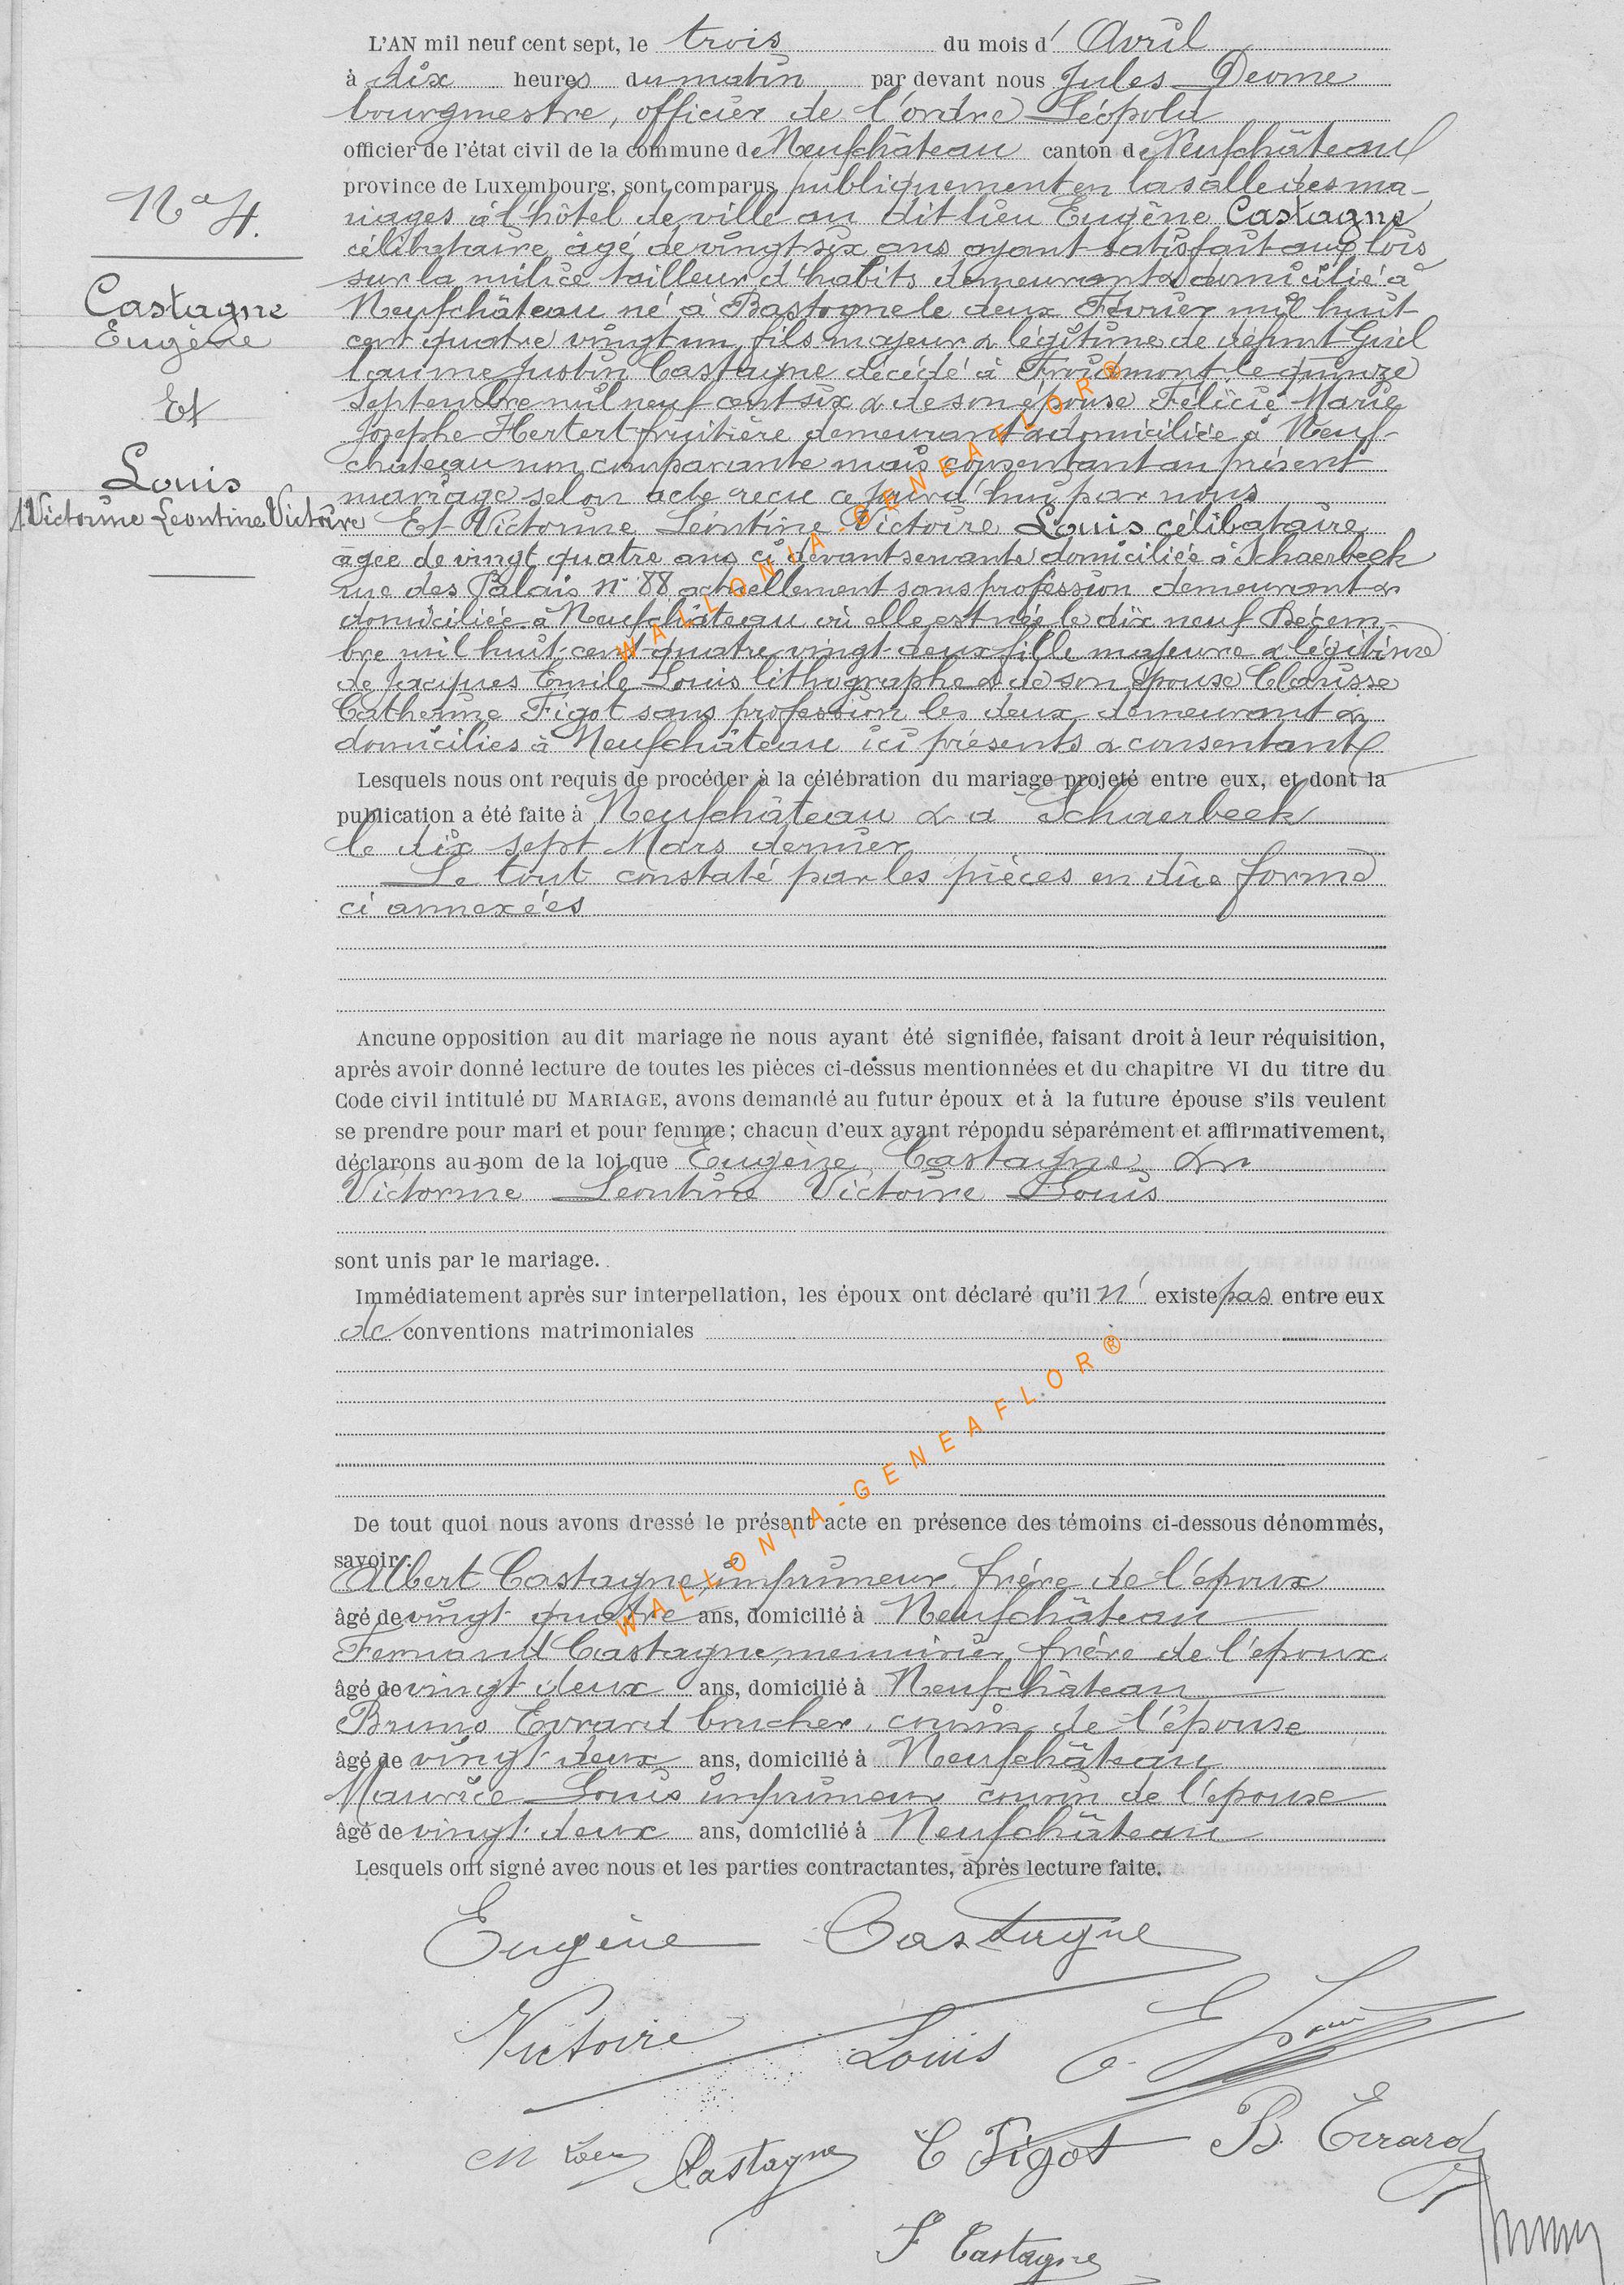 L'AN mil neuf cent sept, le trois du mois d' Avril
à dix heures du matin par devant nous Jules Deome
bourgmestre, officier de l'ordre Léopold
officier de l'état civil de la commune de Neufchâteau canton de Neufchâteau
province de Luxembourg, sont comparus publiquement en la salle des ma-
riages à l'hôtel de ville au dit lieu Eugène Castagne
célibataire âgé de vingt six ans ayant satisfait aux lois
sur la milice tailleur d'habits demeurant & domicilié à
Neufchâteau né à Bastogne le deux Février mil huit
cent quatre vingt un, fils majeur & légitime de défunt Guil
laume Justin Castagne décédé à Froidmont le quinze
Septembre mil neuf cent six & de son épouse Félicie Marie
Josephe Hertert fruitière demeurant & domiciliée à Neuf-
château non comparante mais consentant au présent
mariage selon acte reçu ce jourd'hui par nous
Et Victorine Léontine Victoire Louis célibataire
agée de vingt quatre ans ci devant servante domiciliée à Schaerbeek
rue des Palais n° 88 actuellement sans profession demeurant &
domiciliée à Neufchâteau où elle est née le dix neuf Décem-
bre mil huit cent quatre vingt deux fille majeure & légitime
de Jacques Emile Louis lithographe & de son épouse Clarisse
Catherine Figot sans profession les deux demeurant &
domiciliés à Neufchâteau ici présents & consentant
Lesquels nous ont requis de procéder à la célébration du mariage projeté entre eux, et dont la
publication a été faite à Neufchâteau & à Schaerbeek
le dix sept Mars dernier
Le tout constaté par les pièces en due forme
ci annexées
N° 4.
Castagne
Eugène
Et
Louis
Victorine Leontine Victoire
Aucune opposition au dit mariage ne nous ayant été signifiée, faisant droit à leur réquisition,
après avoir donné lecture de toutes les pièces ci-dessus mentionnées et du chapitre VI du titre du
Code civil intitulé DU MARIAGE, avons demandé au futur époux et à la future épouse s'ils veulent
se prendre pour mari et pour femme; chacun d'eux ayant répondu séparément et affirmativement,
déclarons au nom de la loi que Eugène Castagne &
Victorine Leontine Victoire Louis
sont unis par le mariage.
Immédiatement après sur interpellation, les époux ont déclaré qu'il n' existe pas entre eux
de conventions matrimoniales
De tout quoi nous avons dressé le présent acte en présence des témoins ci-dessous dénommés,
savoir:
Albert Castagne, imprimeur frère de l'époux
âgé de vingt quatre ans, domicilié à Neufchâteau
Fernand Castagne, menuisier, frère de l'époux
âgé de vingt deux ans, domicilié à Neufchâteau
Bruno Evrard boucher, cousin de l'épouse
âgé de vingt deux ans, domicilié à Neufchâteau
Maurice Louis imprimeur cousin de l'épouse
âgé de vingt deux ans, domicilié à Neufchâteau
Lesquels ont signé avec nous et les parties contractantes, après lecture faite.
Eugène Castagne
Victoire Louis E. Louis
Castagne C Figot B. Evrard
F Castagne
WALLONIA-GENEAFLOR®
WALLONIA-GENEAFLOR®